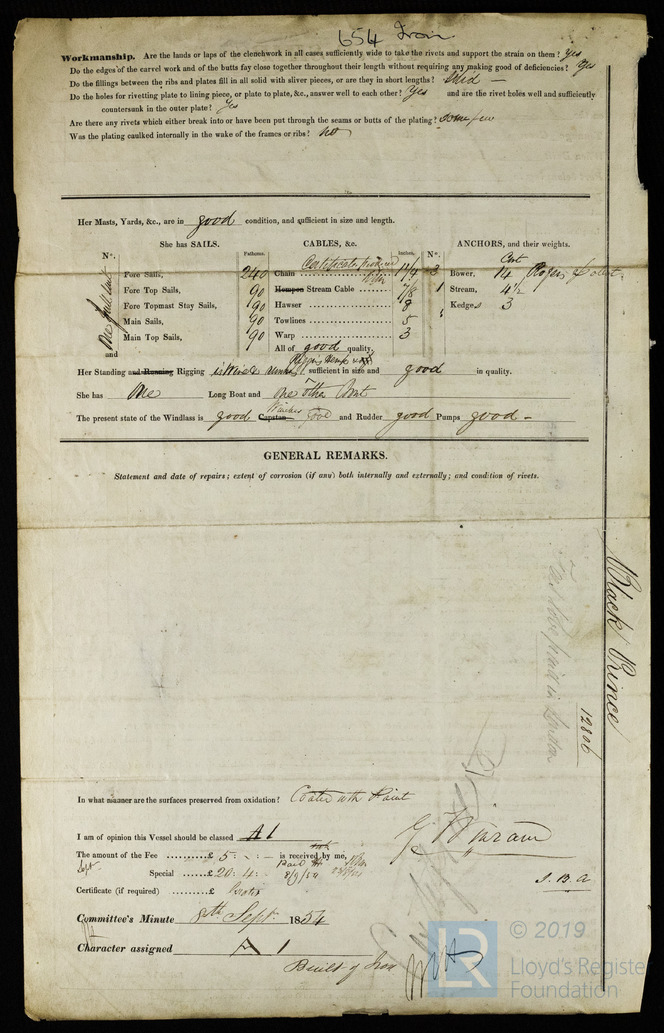 654 Iron
Workmanship. Are the lands or laps of the clenchwork in all cases sufficiently wide to take the rivets and support the strain on them? Yes
Do the edges of the carvel work and of the butts fay close together throughout their length without requiring any making good of deficiencies? Yes
Do the fillings between the ribs and plates fill in all solid with sliver pieces, or are they in short lengths? Solid —
Do the holes for rivetting plate to lining piece, or plate to plate, &c., answer well to each other? Yes and are the rivet holes well and sufficiently
countersunk in the outer plate? Yes
Are there any rivets which either break into or have been put through the seams or butts of the plating? some few
Was the plating caulked internally in the wake of the frames or ribs? No
Her Masts, Yards, &c., are in good condition, and sufficient in size and length.
She has SAILS. CABLES, &c. ANCHORS, and their weights.
N°. Fathoms. Certificate produced Inches. N°. Cwt
Fore Sails, 240 Chain 1 1/4 3 Bower, 14
Fore Top Sails, 90 Hempen Stream Cable 7/8 1 Stream, 4 1/2
Fore Topmast Stay Sails, 90 Hawser 8 Kedges 3
Main Sails, 90 Towlines 5
Main Top Sails, 90 Warp 3
One full suit and All of good quality.
Her Standing and Running Rigging is Wire sufficient in size and good in quality.
She has One Long Boat and One other Boat
The present state of the Windlass is good Capstan good and Rudder good Pumps good —
GENERAL REMARKS.
Statement and date of repairs; extent of corrosion (if any) both internally and externally; and condition of rivets.
Black Prince
12806
Fee paid in London
In what manner are the surfaces preserved from oxidation? Coated with Paint
I am of opinion this Vessel should be classed A 1
The amount of the Fee £ 5 : - : - is received by me,
Special £ 20 : 4 : -
8/9/54
Certificate (if required) £
Committee's Minute 8th Sept. 1854
Character assigned A 1
Built of Iron
© 2019
LR
Lloyd's Register
Foundation